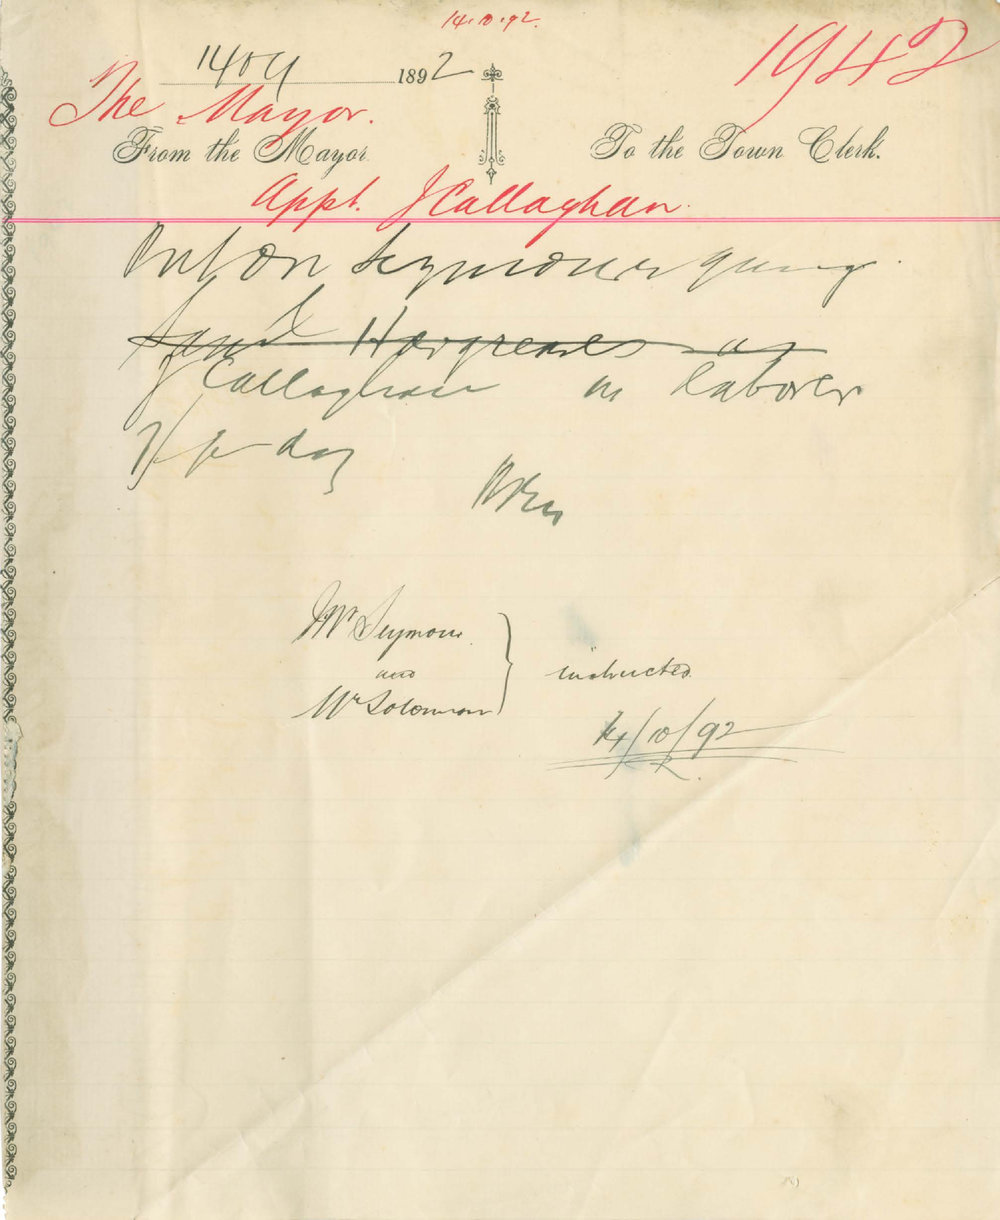 14.10.92.
1942
14 Oct 1892
The Mayor.
From the Mayor. To the Town Clerk.
Appt. J Callaghan.
Put on Seymour gang
J Callaghan as laborer
7/ pr day
Mr Seymour
and
Mr Solomon } instructed
14/10/92